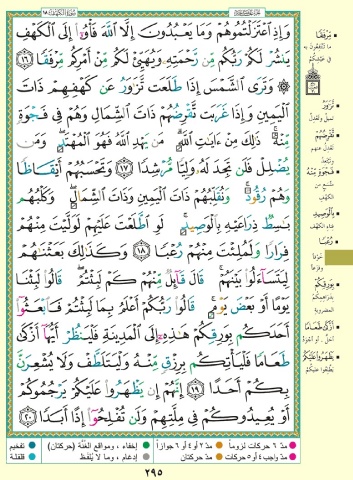 سورة الكهف ١٨
وَإِذِ ٱعْتَزَلْتُمُوهُمْ وَمَا يَعْبُدُونَ إِلَّا ٱللَّهَ فَأْوُۥٓا۟ إِلَى ٱلْكَهْفِ
يَنشُرْ لَكُمْ رَبُّكُم مِّن رَّحْمَتِهِۦ وَيُهَيِّئْ لَكُم مِّنْ أَمْرِكُم مِّرْفَقًا ﴿١٦﴾
۞ وَتَرَى ٱلشَّمْسَ إِذَا طَلَعَت تَّزَٰوَرُ عَن كَهْفِهِمْ ذَاتَ
ٱلْيَمِينِ وَإِذَا غَرَبَت تَّقْرِضُهُمْ ذَاتَ ٱلشِّمَالِ وَهُمْ فِى فَجْوَةٍ
مِّنْهُ ۚ ذَٰلِكَ مِنْ ءَايَٰتِ ٱللَّهِ ۗ مَن يَهْدِ ٱللَّهُ فَهُوَ ٱلْمُهْتَدِ ۖ وَمَن
يُضْلِلْ فَلَن تَجِدَ لَهُۥ وَلِيًّا مُّرْشِدًا ﴿١٧﴾ وَتَحْسَبُهُمْ أَيْقَاظًا
وَهُمْ رُقُودٌ ۚ وَنُقَلِّبُهُمْ ذَاتَ ٱلْيَمِينِ وَذَاتَ ٱلشِّمَالِ ۖ وَكَلْبُهُم
بَٰسِطٌ ذِرَاعَيْهِ بِٱلْوَصِيدِ ۚ لَوِ ٱطَّلَعْتَ عَلَيْهِمْ لَوَلَّيْتَ مِنْهُمْ
فِرَارًا وَلَمُلِئْتَ مِنْهُمْ رُعْبًا ﴿١٨﴾ وَكَذَٰلِكَ بَعَثْنَٰهُمْ
لِيَتَسَآءَلُوا۟ بَيْنَهُمْ ۚ قَالَ قَآئِلٌ مِّنْهُمْ كَمْ لَبِثْتُمْ ۖ قَالُوا۟ لَبِثْنَا
يَوْمًا أَوْ بَعْضَ يَوْمٍ ۚ قَالُوا۟ رَبُّكُمْ أَعْلَمُ بِمَا لَبِثْتُمْ فَٱبْعَثُوٓا۟
أَحَدَكُم بِوَرِقِكُمْ هَٰذِهِۦٓ إِلَى ٱلْمَدِينَةِ فَلْيَنظُرْ أَيُّهَآ أَزْكَىٰ
طَعَامًا فَلْيَأْتِكُم بِرِزْقٍ مِّنْهُ وَلْيَتَلَطَّفْ وَلَا يُشْعِرَنَّ
بِكُمْ أَحَدًا ﴿١٩﴾ إِنَّهُمْ إِن يَظْهَرُوا۟ عَلَيْكُمْ يَرْجُمُوكُمْ
أَوْ يُعِيدُوكُمْ فِى مِلَّتِهِمْ وَلَن تُفْلِحُوٓا۟ إِذًا أَبَدًا ﴿٢٠﴾
مِّرْفَقًا
ما تنتفعون به
في عيشكم
تَّزَٰوَرُ
تميل وتعدل
تَّقْرِضُهُمْ
تعدل
وتبتعد
فَجْوَةٍ مِّنْهُ
متسع من
الكهف
بِٱلْوَصِيدِ
فناء الكهف
رُعْبًا
خوفا
وفزعا
بِوَرِقِكُمْ
بدراهمكم
المضروبة
أَزْكَىٰ طَعَامًا
أحل، أو أجود
يَظْهَرُوا۟ عَلَيْكُمْ
يطلعوا عليكم
مدّ ٦ حركات لزوماً مدّ ٢ أو ٤ أو ٦ جوازاً إخفاء، ومواقع الغُنَّة (حركتان) تفخيم
مدّ واجب ٤ أو ٥ حركات مدّ حركتان إدغام، وما لا يُلفَظ قلقلة
٢٩٥